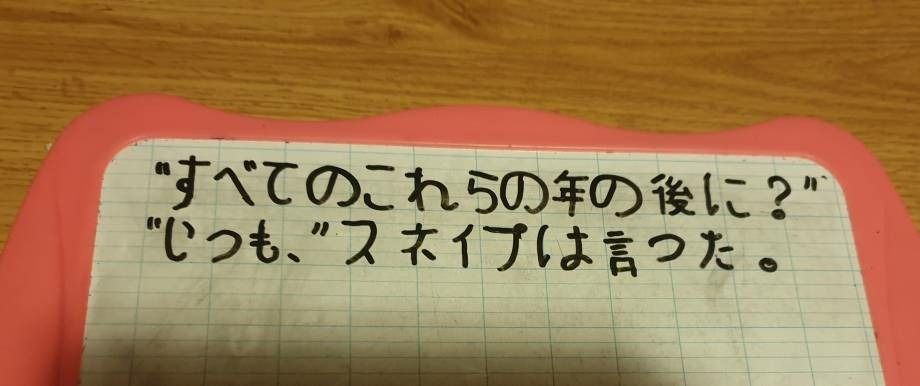 "すべてのこれらの年の後に?"
"いつも、"スネイプは言った。